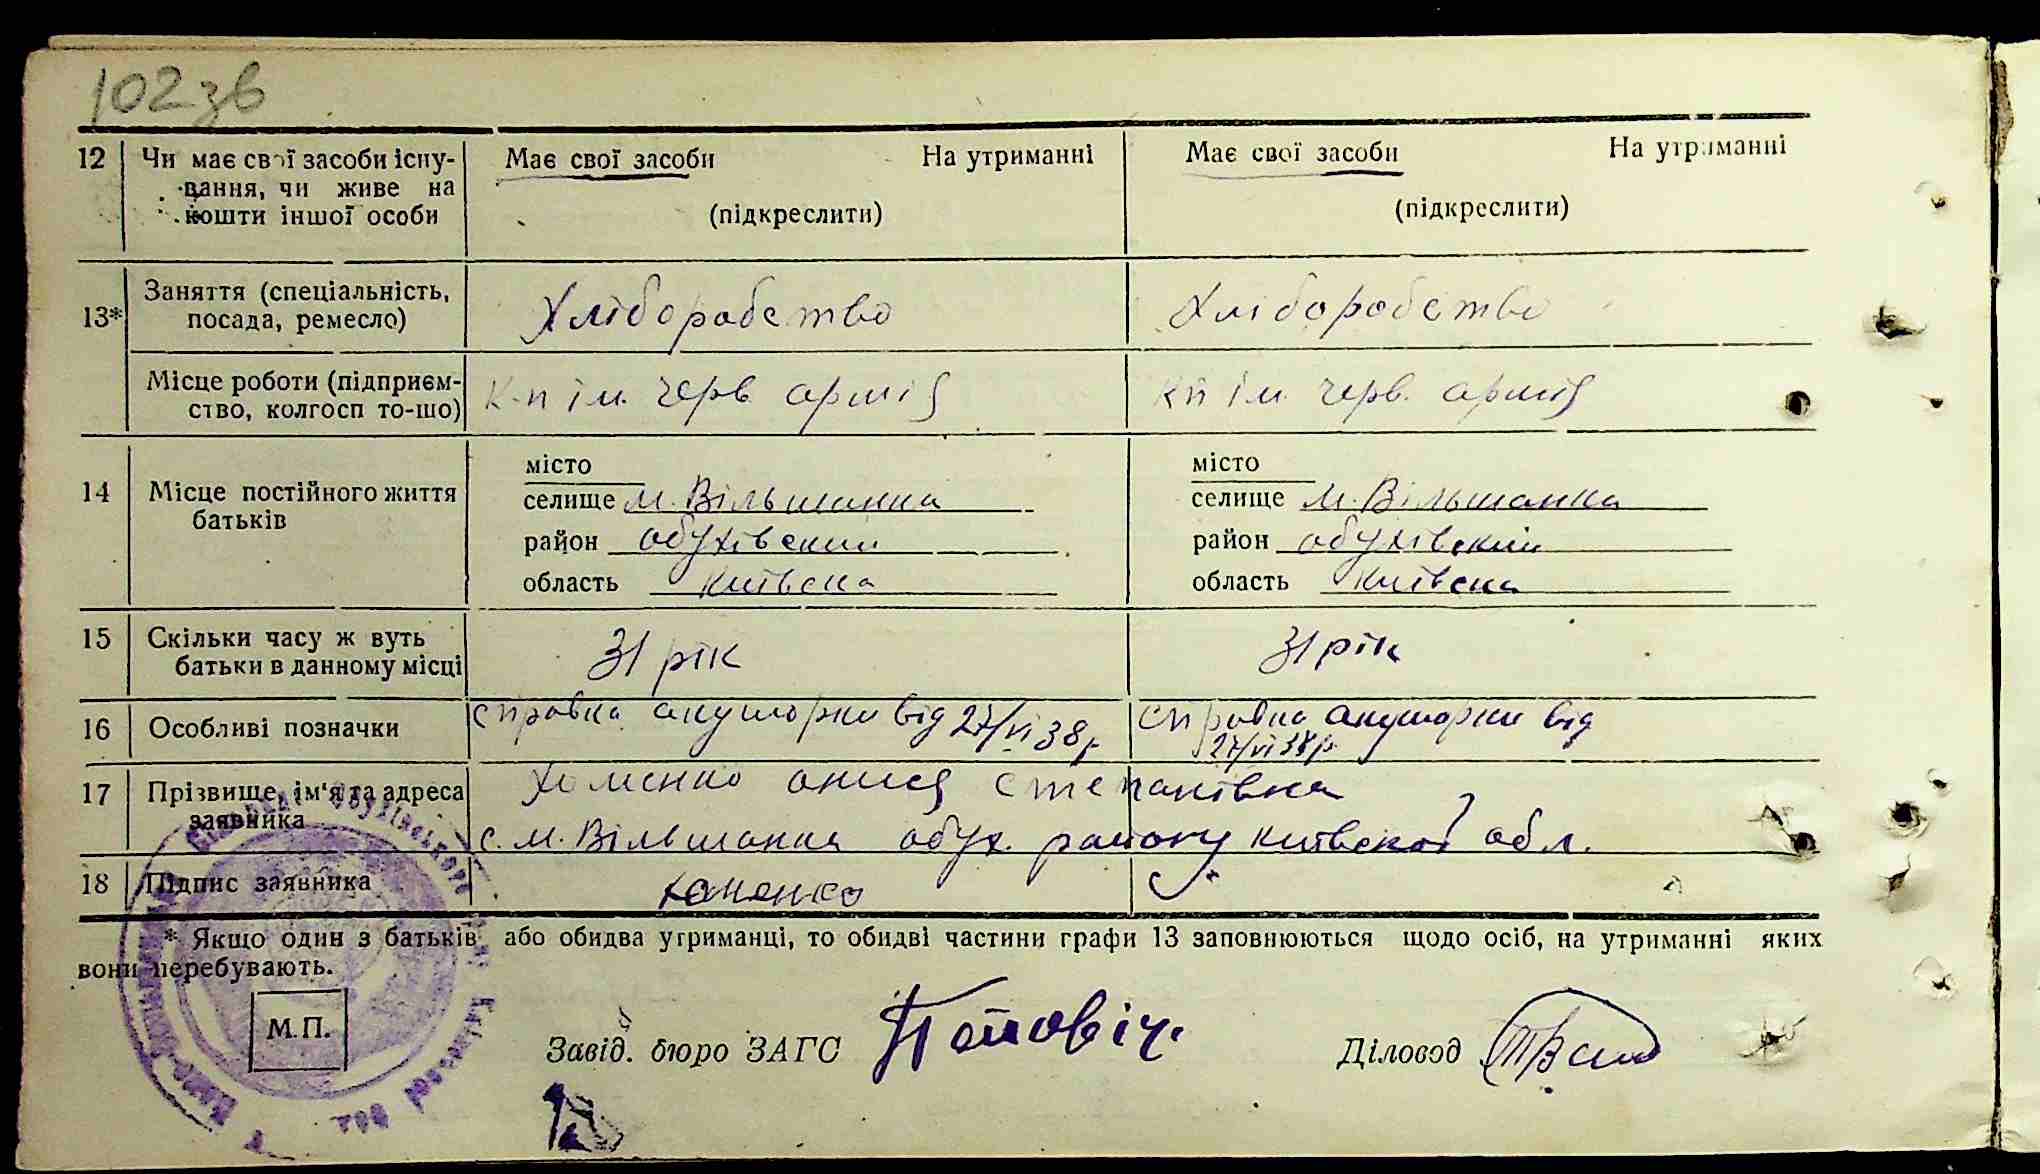 102зв
12 Чи має свої засоби існу- Має свої засоби На утриманні Має свої засоби На утриманні
вання, чи живе на
кошти іншої особи (підкреслити) (підкреслити)
13* Заняття (спеціальність, посада, ремесло) Хліборобство Хліборобство
Місце роботи (підприєм- К-п ім. черв армії Кп ім. черв. армії
ство, колгосп то-що)
місто місто
14 Місце постійного життя селище М. Вільшанка селище М. Вільшанка
батьків район обухівский район обухівский
область київска область київска
15 Скільки часу ж вуть 31 рік 31 рік
батьки в данному місці
16 Особливі позначки справка акушорки від 27/VI 38 р справка акушорки від
27/VI 38 р.
17 Прізвище, ім'я та адреса Хоменко Степанівна
заявника с. М. Вільшанка обух. району київской обл.
18 Підпис заявника
* Якщо один з батьків або обидва утриманці, то обидві частини графи 13 заповнюються щодо осіб, на утриманні яких
вони перебувають.
М.П. Завід. бюро ЗАГС Попович. Діловод